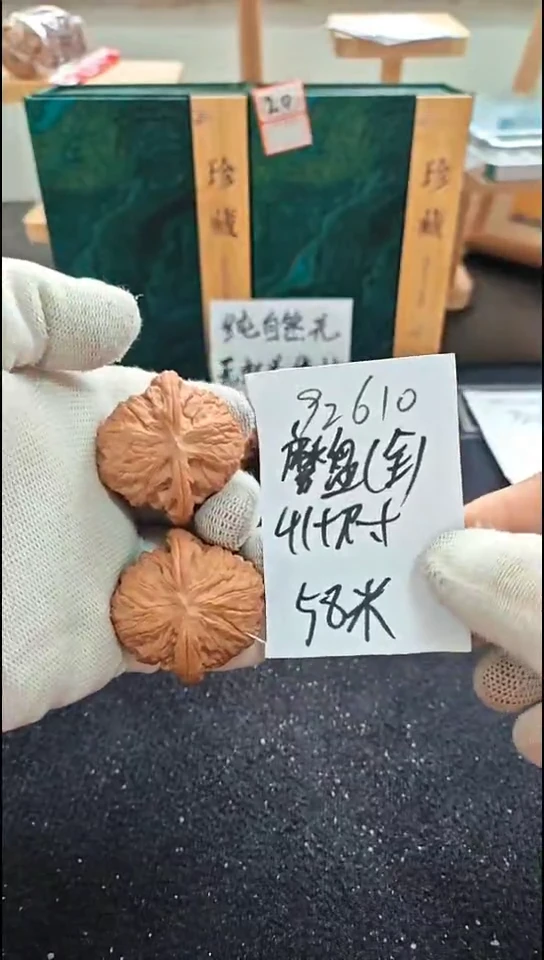 20
珍藏
珍藏
纯自然孔
92610
磨盘(全)
41+尺寸
58米